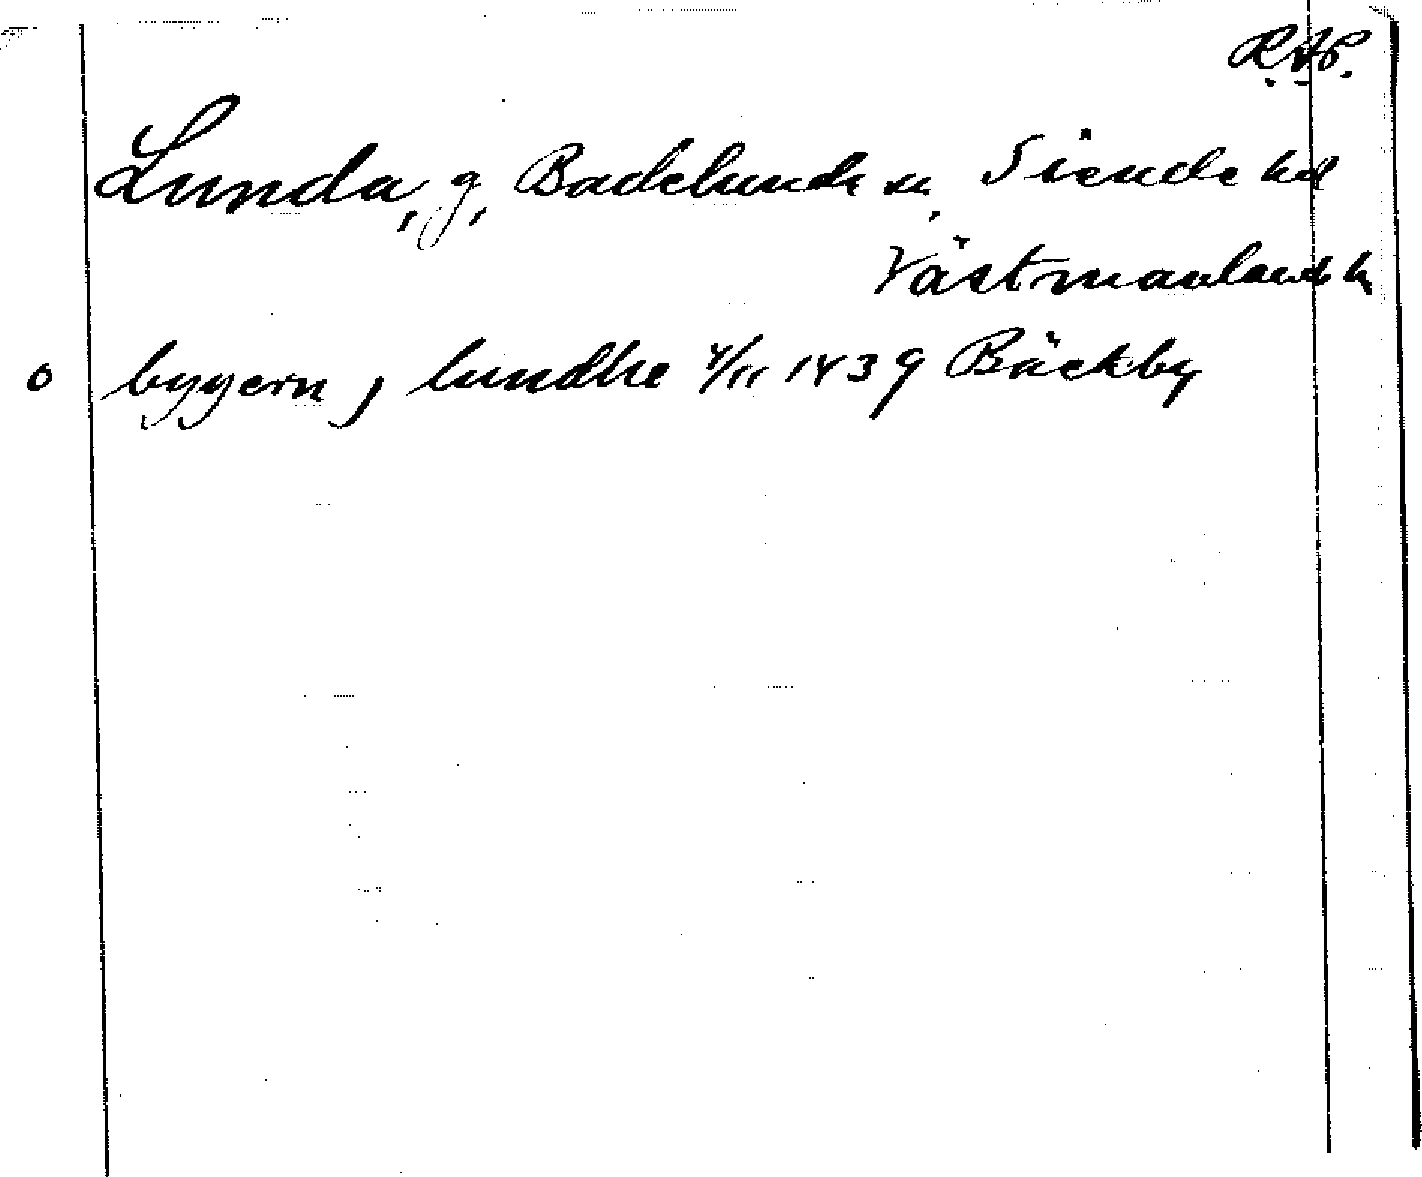 R.A.P.
Lunda, g, Badelunda sn, Siende hd
Västmanlands l.
o byggern j lundhe 4/11 1439 Bäckby